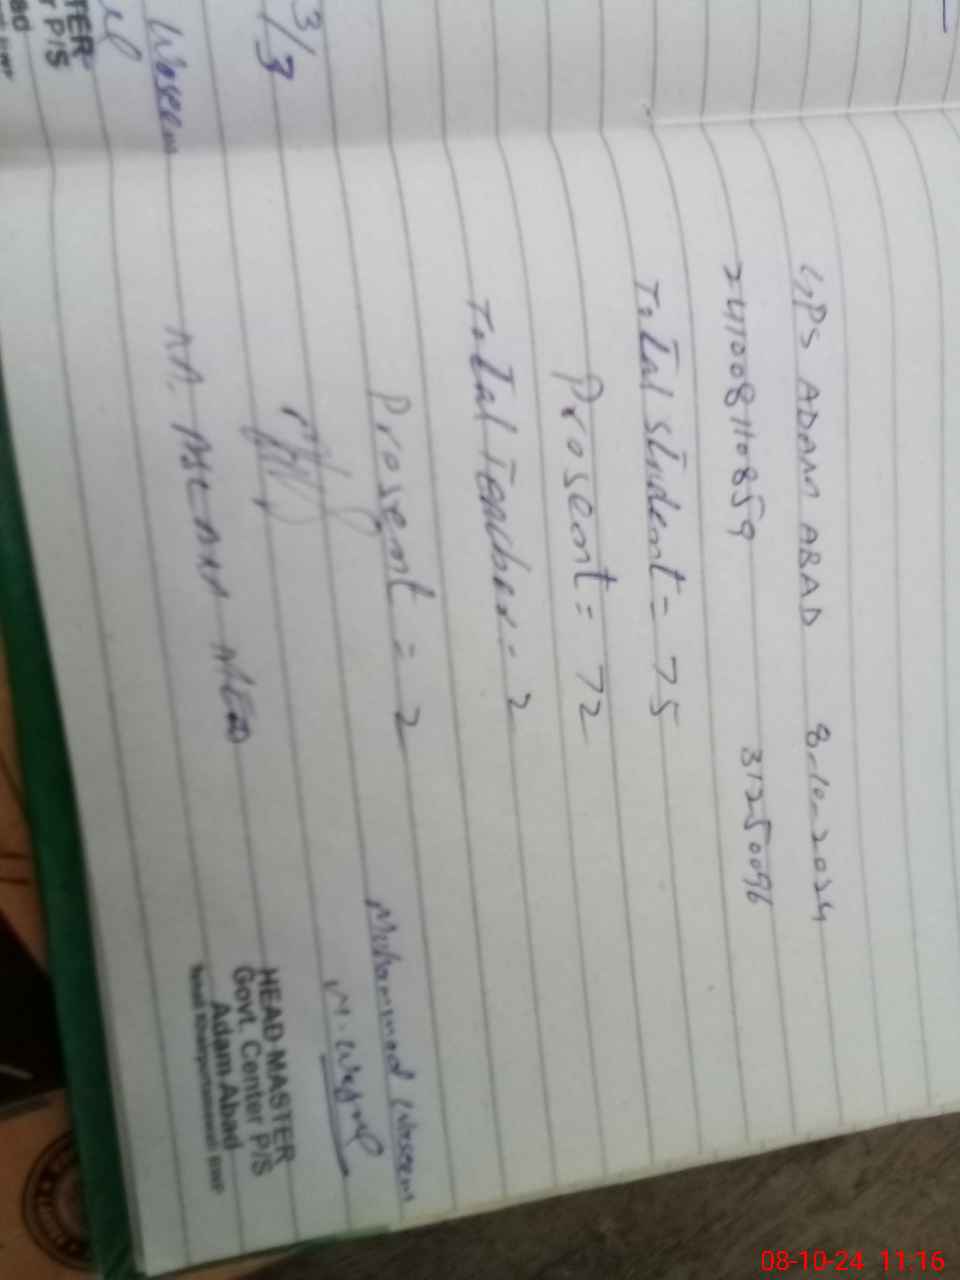 GPS ADAM ABAD 8-10-2024
2411008110859 31250096
Total student = 75
Prosent = 72
Total Teacher = 2
Prosent = 2
Muhammad Waseem
HEAD MASTER
Govt. Center P/S
Adam Abad
3/3
Waseem
TER
r P/S
08-10-24 11:16